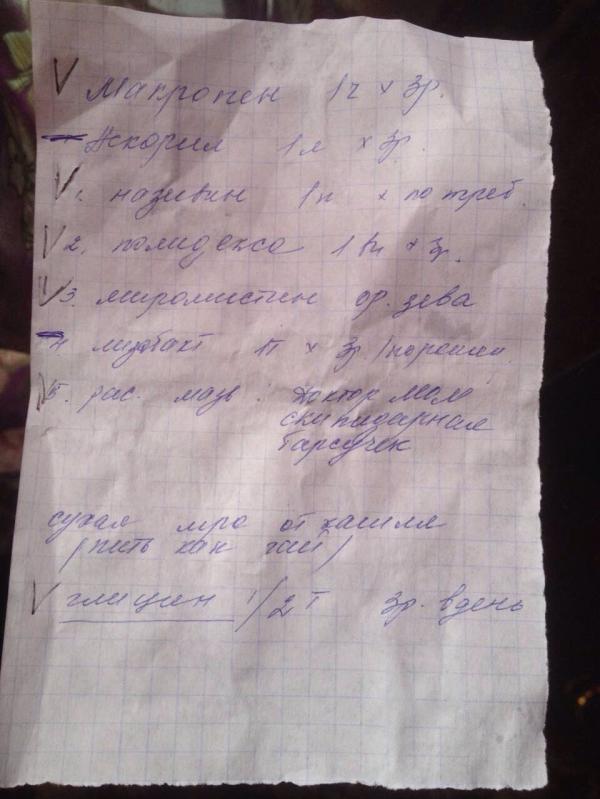 V Макропен 1т х 3р.
Аскорил 1л х 3р.
V 1. називин 1к х по треб.
V 2. полидекса 1 вп х 3р.
V 3. мирамистин ор. зева
4 лизобакт 1т х 3р. (порошки
V 5. рас. мазь: Доктор Мом
скипидарная
барсучек
сухая мро от кашля
(пить как чай)
V глицин 1/2 т 3р. в день